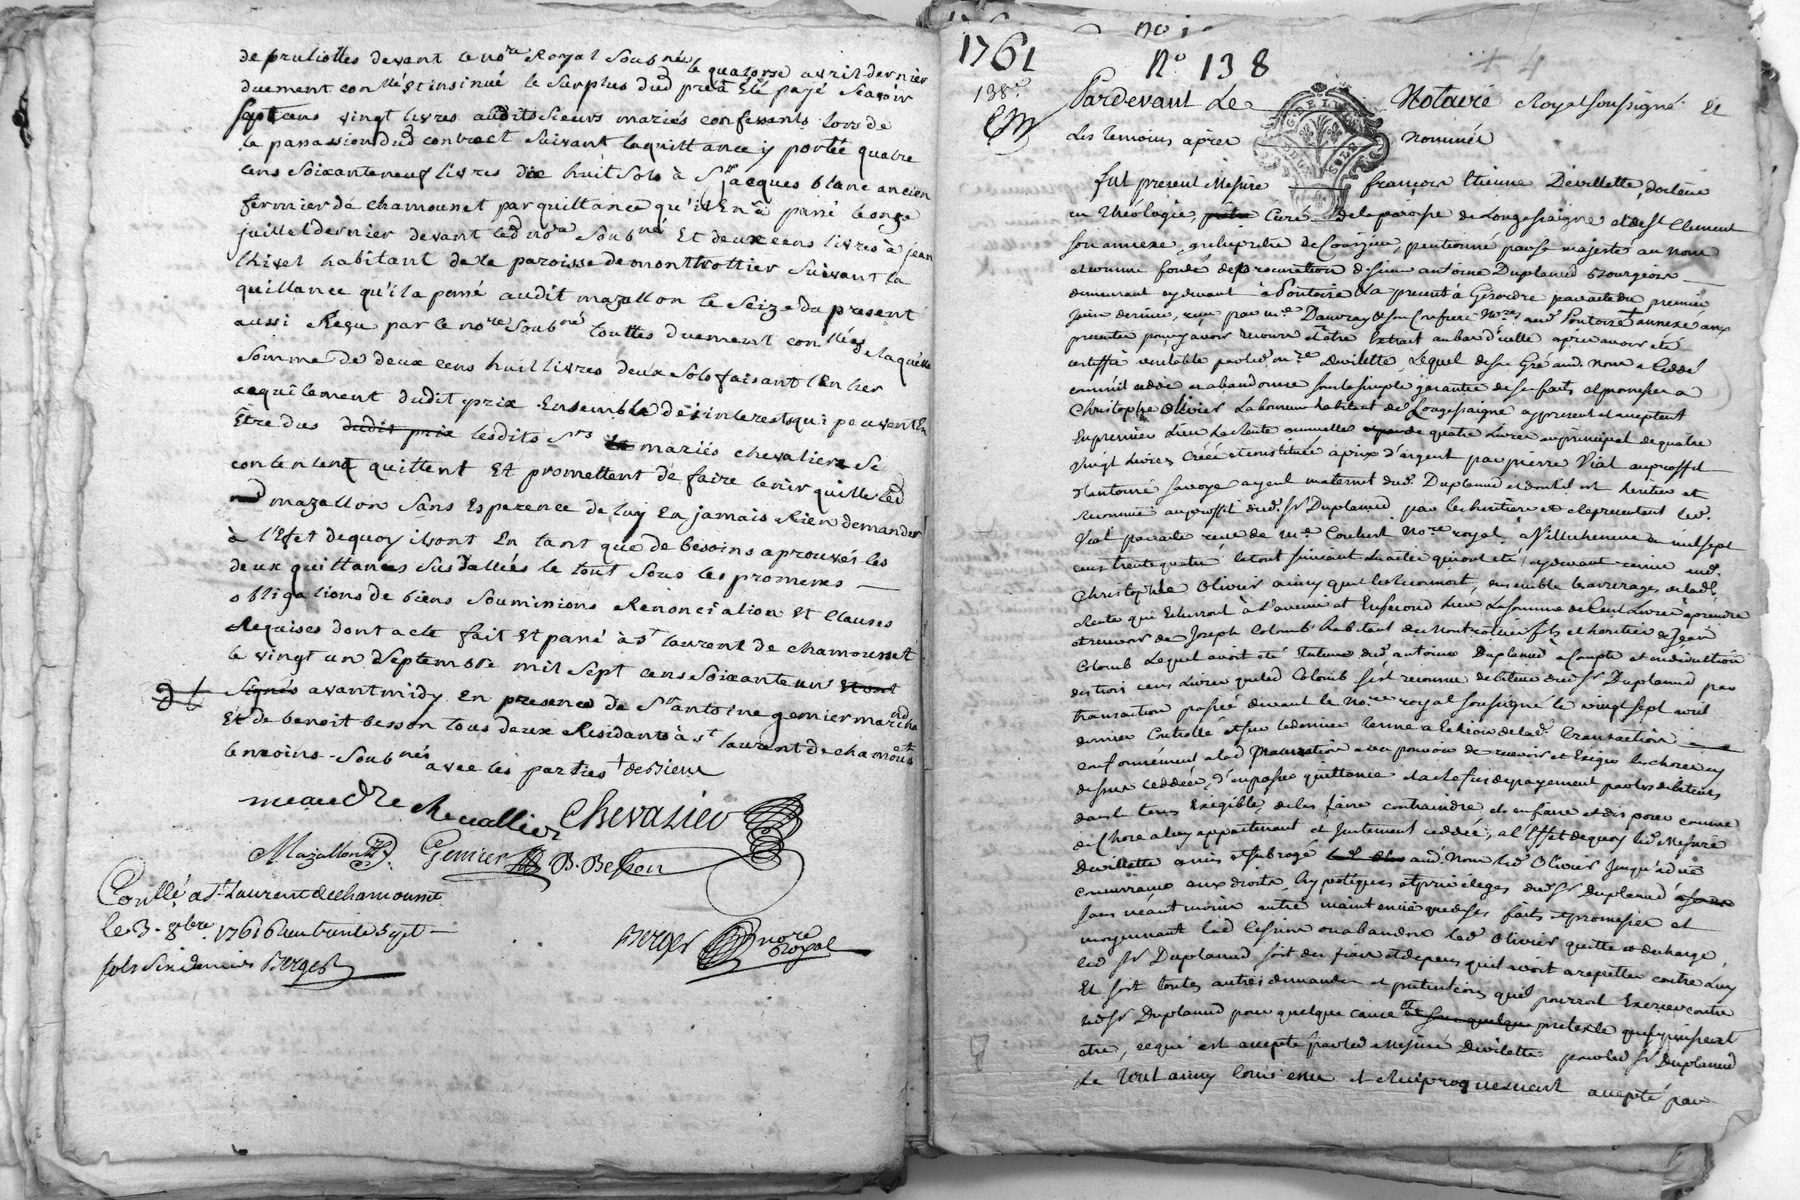 de pruliottes devant le nore Royal Soubné le quatorse avril dernier
duement conllé Et insinué le surplus dud prix a Eté payé Scavoir
Sept cens vingt livres audits sieurs mariés confessants lors de
la passassion dud contract suivant la quittance y portée quatre
cens soixante neuf livres dix huit sols à Sr jacques blanc ancien
fermier de chamounet par quittance qu'il En a passé le onze
juillet dernier devant led nore Soubné Et deux cens livres à jean
thivel habitant de la paroisse de montrottier suivant la
quittance qu'il a passé audit mazallon le seize du present
aussi Reçu par le nore Soubné touttes duement conllées de laquelle
somme de deux cens huit livres deux sols faisant l'Entier
acquitement dudit prix Ensemble des interests qui peuvent En
Etre dus dudit prix lesdits Srs mariés chevalier se
contentent quittent Et promettent de faire tenir quitte led
mazallon sans Esperence de luy En jamais Rien demander
à l'Efet de quoy ils ont En tant que de besoins aprouvés les
deux quittances susdattées le tout sous les promesses
obligations de biens soumissions Renonciation Et Clauses
Requises dont acte fait Et passé à St laurent de chamousset
le vingt un Septembre mil sept cens soixante un Et ont
Signés avant midy En presence de Sr antoine genier marchand
Et de benoit besson tous deux Residants à St laurent de chamousset
temoins Soubnés avec les parties + dessieux
meaudre chevallier Chevalier
Mazallon Genier B. Besson
Conllé a St Laurent de chamousset
le 3. 8bre 1761 Reçu trente sept
sols six deniers Berger
Berger nore Royal
1761
no 1
No 138
138e
+ 4
Pardevant Le Notaire Royal soussigné Et
Les temoins apres nommés
fut present Messire françois Etienne Devillette, docteur
en Théologie, Curé de la paroisse de Longessaigne et de St Clement
son annexe, archiprêtre de Courzieu, pentionné par sa majesté au nom
et comme fondé de procuration de sieur antoine Duplanud Bourgeois
demeurant cy devant à Pontoise Et a present à Gisordre par acte du premier
juin dernier, reçu par Me Dauvray et son Confrere Nores aud Pontoise + annexé aux
presentes pour y avoir recours et etre Extrait au bas d'icelle apres avoir eté
certiffié veritable par led mre Devillette, Lequel de son Gré aud. nom a Ceddé
comme il cedde et abandonne sous la simple garantie de ses faits et promesses a
Christophe Olivier Laboureur habitant de Longessaigne cy present et acceptant
En premier Lieu La Rente annuelle de quatre Livres au principal de quatre
vingt Livres Créée et constituée à prix d'argent par pierre Vial au proffit
d'antoine savoye ayeul maternel dud. Duplanud et dont il est heritier et
reconnuë au proffit dud. Sr Duplanud par les heritiers et representant led.
Vial par acte reçu de Me Coubert Nore royal, à Villechenève du mil sept
cens trente quatre le tout suivant les actes qui ont eté cy devant remis aud.
Christophle Olivier ainsy quil le reconnoit, ensemble les arrerages de lad.
Rente qui Echerront à l'avenir et En second Lieu La somme de Cent Livres a prendre
et recevoir de Joseph Colomb habitant de Montrottier fils et heritier de Jean
Colomb Lequel avoit eté tuteur dud. antoine Duplanud a Compte et en deduction
des trois cens Livres que led Colomb s'est reconnu debiteur dud Sr Duplanud par
transaction passée devant le Nore royal soussigné le vingt sept avril
dernier Controllé
conformément a lad procuration avec pouvoir de recevoir et Exiger les choses cy
dessus ceddées, d'en passer quittance et a deffaut de payement par les debiteurs
dans les tems Exigible, de les faire contraindre et en faire et disposer comme
de Chose a luy appartenant et justement ceddée; a l'Effet de quoy led Messire
Devillette a mis et subrogé aud. Nom led Olivier jusqu'a due
concurrance aux droits, hypotéques et privileges dud Sr Duplanud
sans néantmoins autre maintenuë que de ses faits et promesses et
moyennant lad Cession et abandon led Olivier quitte et decharge
led Sr Duplanud soit des frais et depens qu'il avoit a repetter contre Luy
Et soit toutes autres demandes et pretentions quil pourroit Exercer contre
led Sr Duplanud pour quelque cause et sous quelque pretexte que ce puisse
etre, ce qui est accepté par led Messire Devillette pour led Sr Duplanud
Le tout ainsy convenu et reciproquement accepté par